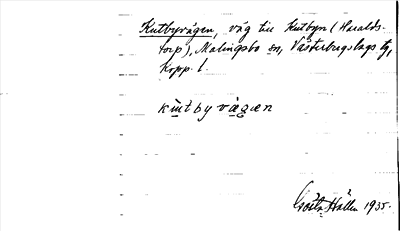 Kutbyvägen, väg till Kutbyn (Haralds-
torp), Malingsbo sn, Västerbergslags tg,
Kopp. l.
kùtbyvä̀gæn
Gösta Hallén 1935.